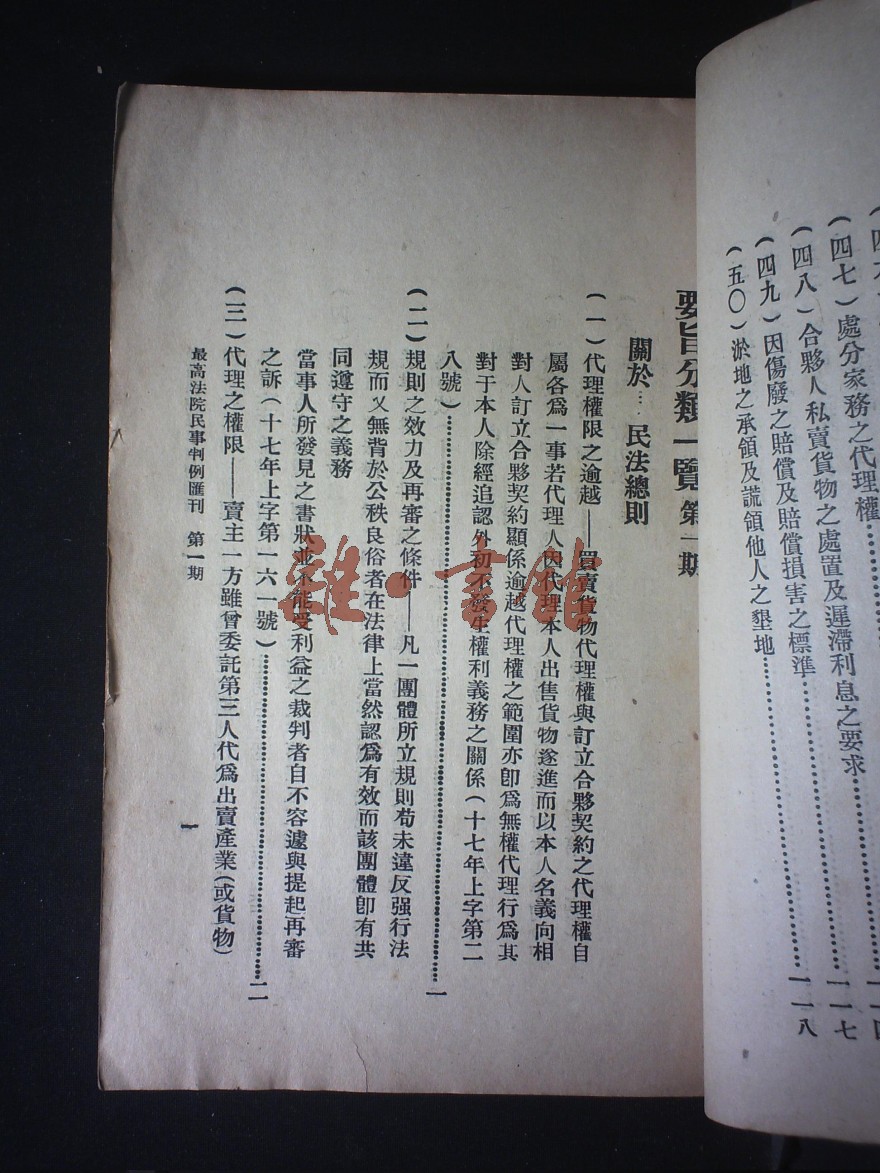 (四七)處分家務之代理權……一一七
(四八)合夥人私賣貨物之處置及遲滯利息之要求……一一七
(四九)因傷廢之賠償及賠償損害之標準……一一八
(五〇)淤地之承領及謊領他人之墾地……
要旨分類一覽 第一期
關於…民法總則
(一)代理權限之逾越——買賣貨物代理權與訂立合夥契約之代理權自
屬各爲一事若代理人因代理本人出售貨物遂進而以本人名義向相
對人訂立合夥契約顯係逾越代理權之範圍亦卽爲無權代理行爲其
對于本人除經追認外初不發生權利義務之關係(十七年上字第二
八號)……一
(二)規則之效力及再審之條件——凡一團體所立規則苟未違反强行法
規而又無背於公秩良俗者在法律上當然認爲有效而該團體卽有共
同遵守之義務
當事人所發見之書狀並不能受利益之裁判者自不容遽與提起再審
之訴(十七年上字第一六一號)……二
(三)代理之權限——賣主一方雖曾委託第三人代爲出賣產業(或貨物)
最高法院民事判例匯刊 第一期
一
雜·書館